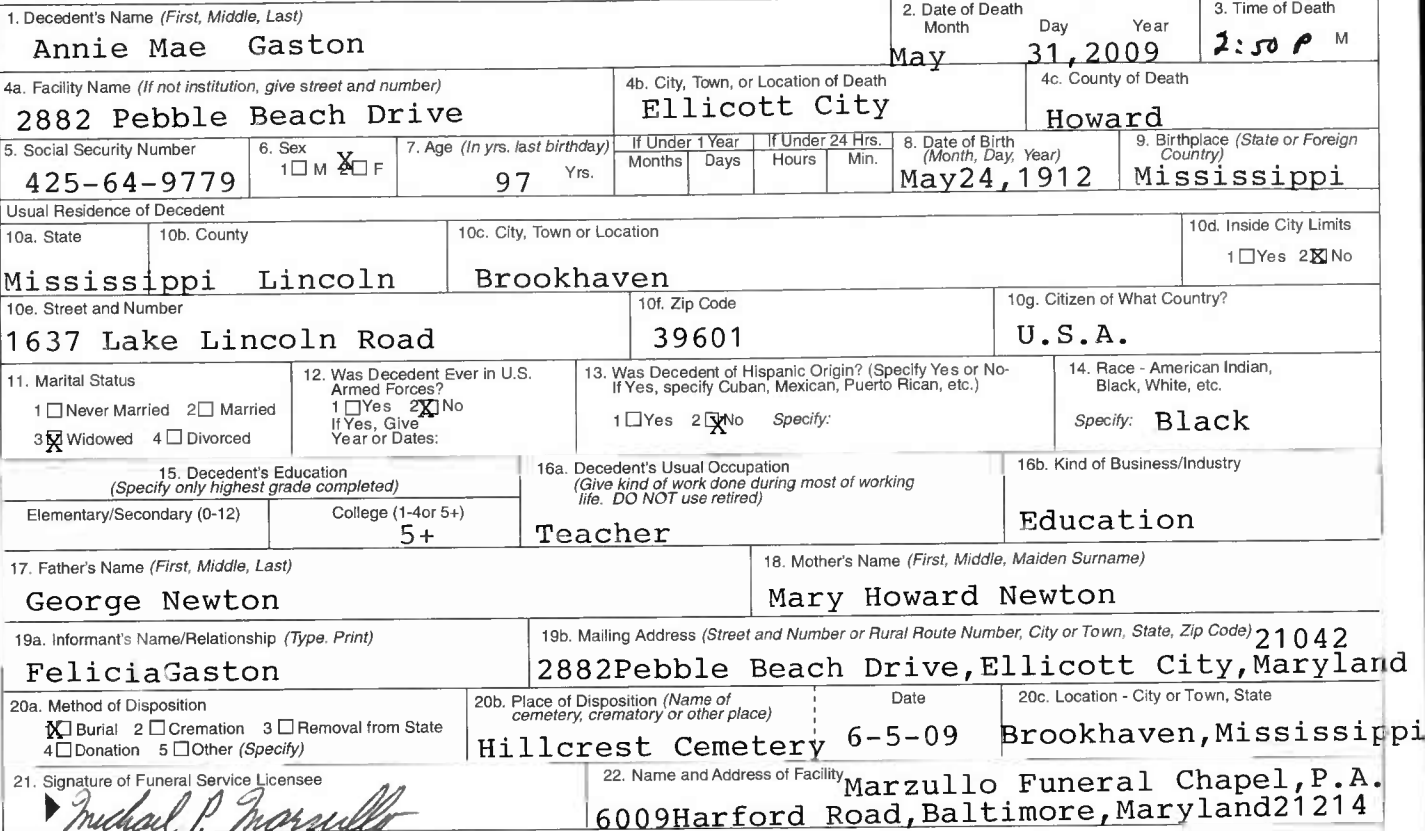 1. Decedent's Name (First, Middle, Last)
Annie Mae Gaston
2. Date of Death
Month Day Year
May 31,2009
3. Time of Death
2:50 P M
4a. Facility Name (If not institution, give street and number)
2882 Pebble Beach Drive
4b. City, Town, or Location of Death
Ellicott City
4c. County of Death
Howard
5. Social Security Number
425-64-9779
6. Sex
1 M X 2 F
7. Age (In yrs. last birthday)
97 Yrs.
If Under 1 Year
Months Days
If Under 24 Hrs.
Hours Min.
8. Date of Birth
(Month, Day, Year)
May24,1912
9. Birthplace (State or Foreign
Country)
Mississippi
Usual Residence of Decedent
10a. State
Mississippi
10b. County
Lincoln
10c. City, Town or Location
Brookhaven
10d. Inside City Limits
1 Yes 2 X No
10e. Street and Number
1637 Lake Lincoln Road
10f. Zip Code
39601
10g. Citizen of What Country?
U.S.A.
11. Marital Status
1 Never Married 2 Married
3 X Widowed 4 Divorced
12. Was Decedent Ever in U.S.
Armed Forces?
1 Yes 2 X No
If Yes, Give
Year or Dates:
13. Was Decedent of Hispanic Origin? (Specify Yes or No-
If Yes, specify Cuban, Mexican, Puerto Rican, etc.)
1 Yes 2 X No Specify:
14. Race - American Indian,
Black, White, etc.
Specify: Black
15. Decedent's Education
(Specify only highest grade completed)
Elementary/Secondary (0-12)
College (1-4or 5+)
5+
16a. Decedent's Usual Occupation
(Give kind of work done during most of working
life. DO NOT use retired)
Teacher
16b. Kind of Business/Industry
Education
17. Father's Name (First, Middle, Last)
George Newton
18. Mother's Name (First, Middle, Maiden Surname)
Mary Howard Newton
19a. Informant's Name/Relationship (Type. Print)
FeliciaGaston
19b. Mailing Address (Street and Number or Rural Route Number, City or Town, State, Zip Code) 21042
2882Pebble Beach Drive,Ellicott City,Maryland
20a. Method of Disposition
1 X Burial 2 Cremation 3 Removal from State
4 Donation 5 Other (Specify)
20b. Place of Disposition (Name of
cemetery, crematory or other place)
Hillcrest Cemetery
Date
6-5-09
20c. Location - City or Town, State
Brookhaven,Mississippi
21. Signature of Funeral Service Licensee
Michael P. Marzullo
22. Name and Address of Facility Marzullo Funeral Chapel,P.A.
6009Harford Road,Baltimore,Maryland21214